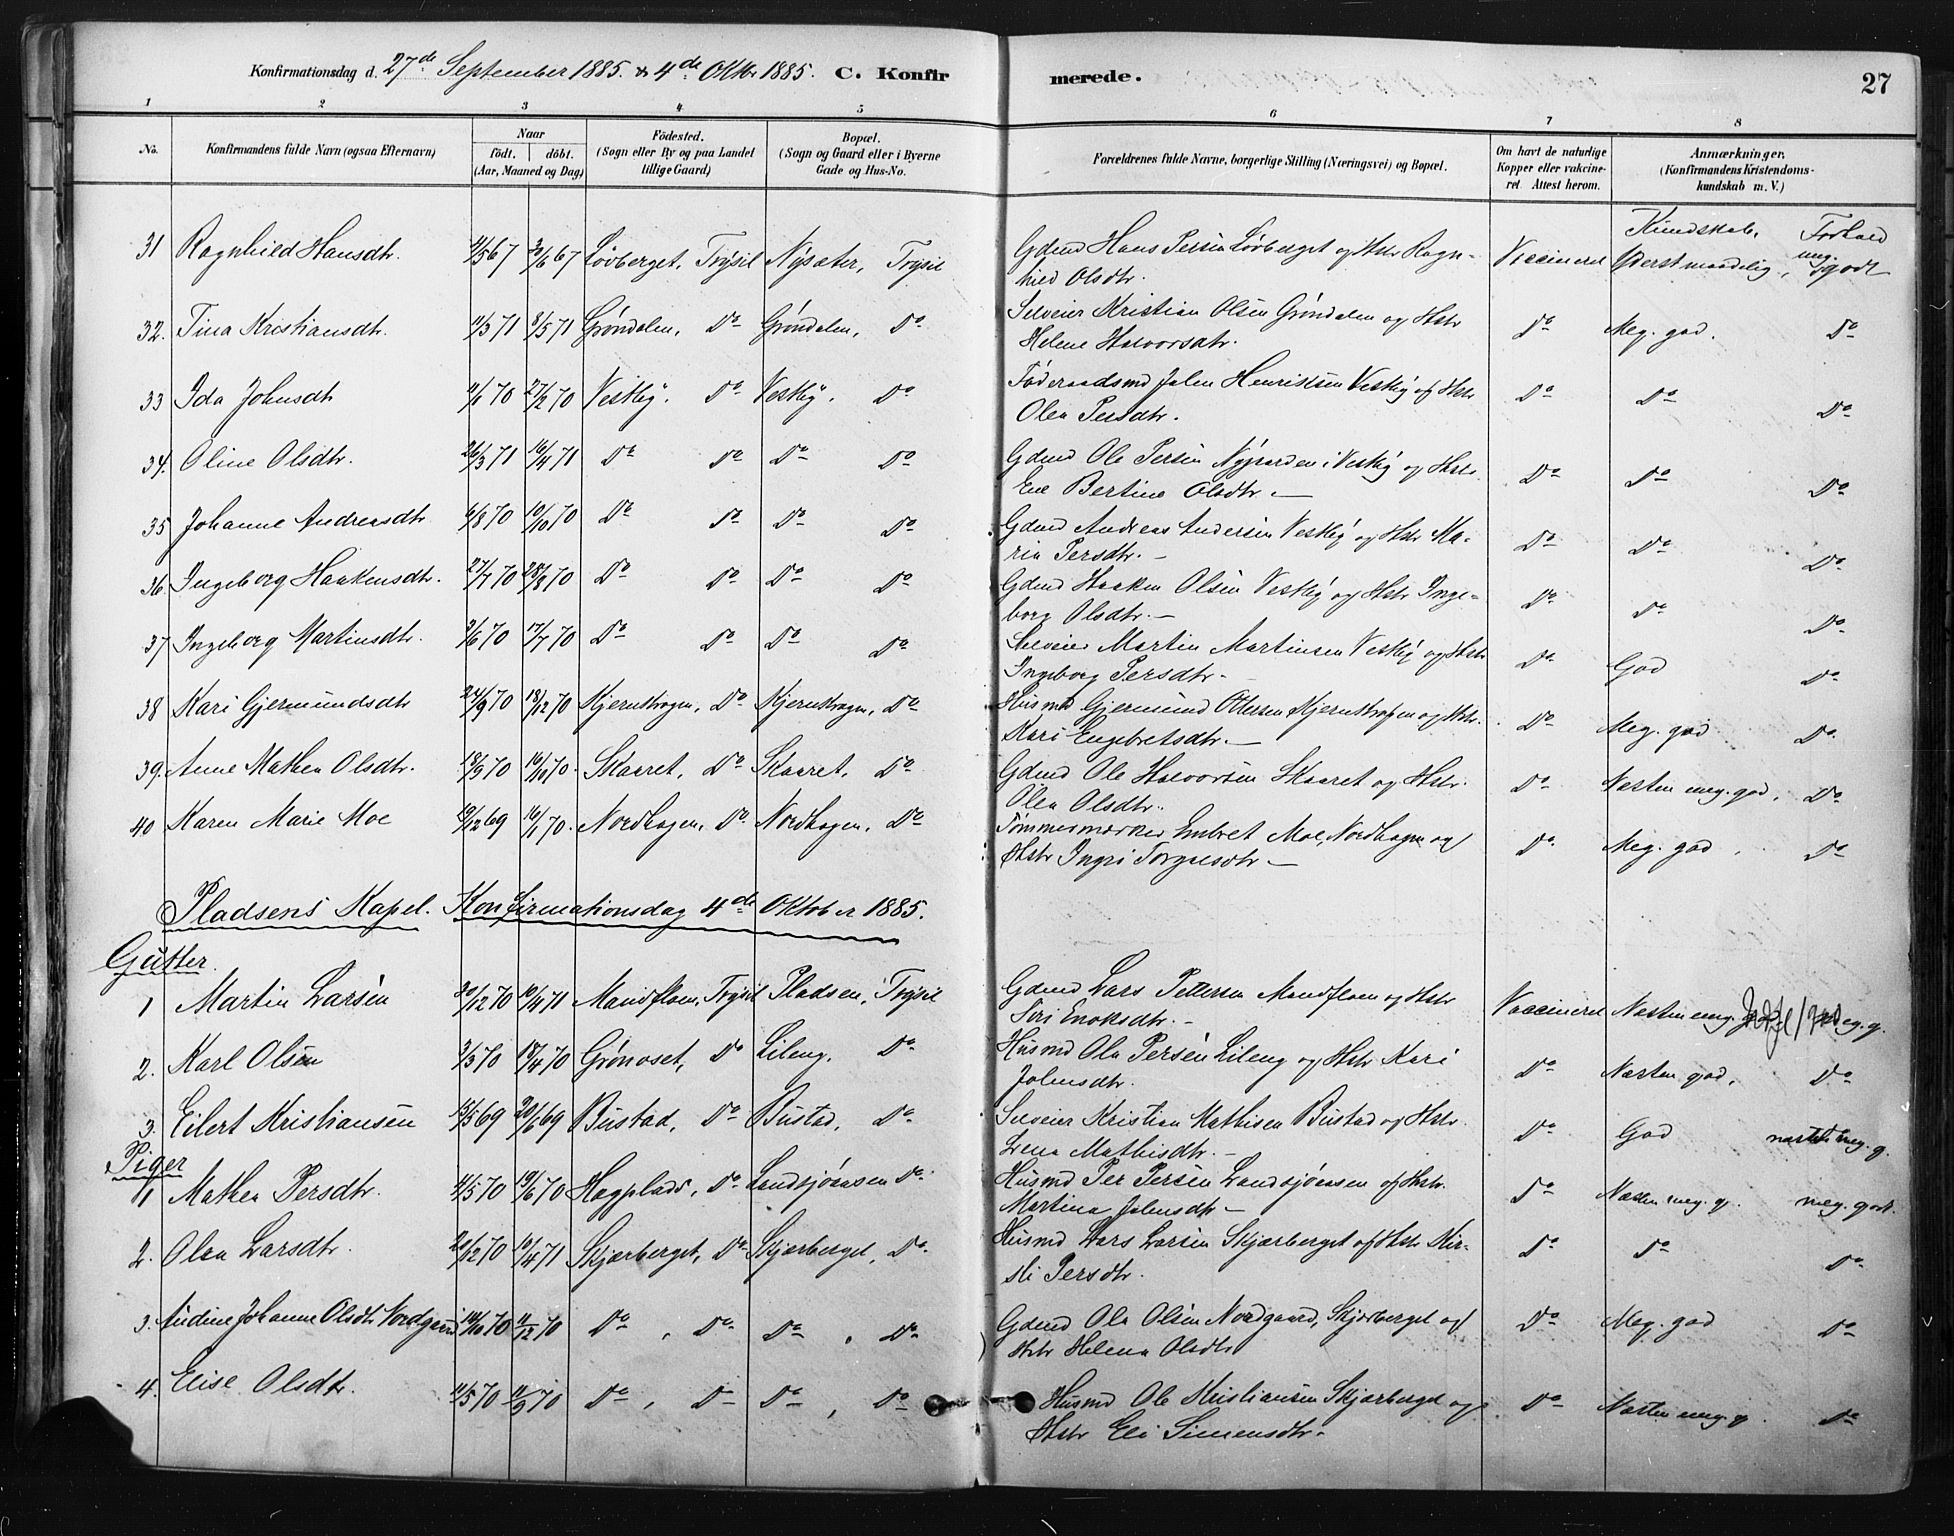 Konfirmationsdag d. 27de September 1885. & 4de Oktbr 1885. C. Konfirmerede. 27
1 2 3 4 5 6 7 8
No. Konfirmandens fulde Navn (ogsaa Efternavn) Naar födt. döbt. (Aar, Maaned og Dag) Födested. (Sogn eller By og paa Landet tillige Gaard) Bopæl. (Sogn og Gaard eller i Byerne Gade og Hus-No. Forældrenes fulde Navne, borgerlige Stilling (Næringsvei) og Bopæl. Om havt de naturlige Kopper eller vakcineret. Attest herom. Anmærkninger. (Konfirmandens Kristendomskundskab m. V.)
Kundskab. Forhold
31 Ragnhild Hansdtr. 67 30/6 67 Lövberget, Trysil Nysæter, Trysil Gdmd Hans Persen Lövberget og Hstr Ragnhild Olsdtr. Vaccineret Yderst maadelig, meg. godt
32. Tina Kristiansdtr. 11/3 71 8/5 71 Gröndalen, Do Gröndalen, Do Selveier Kristian Olsen Gröndalen og Hstr Helene Halvorsdtr. Do Meg. god. Do
33 Ida Johnsdtr 70 27/2 70 Vestby. Do Vestby. Do Föderaadsmd John Henriksen Vestby og Hstr Olea Persdtr. Do Do Do
34. Oline Olsdtr. 26/3 71 16/4 71 Do Do Do Do Gdmd Ole Persen Nygarden i Vestby og Hstr Ene Bertine Olsdtr. Do Do Do
35 Johanne Andreasdtr 6/8 70 10/10 70 Do Do Do Do Gdmd Andreas Andersen Vestby og Hstr Maria Persdtr. Do Do Do
36. Ingeborg Haakensdtr. 27/7 70 28/8 70 Do Do Do Do Gdmd Haaken Olsen Vestby og Hstr Ingeborg Olsdtr. Do Do Do
37 Ingeborg Martinsdtr. 9/6 70 17/7 70 Do Do Do Do Selveier Martin Martinsen Vestby og Hstr Ingeborg Persdtr. Do God Do
38 Kari Gjermundsdtr 24/9 70 18/12 70 Kjernskogen, Do Kjernskogen, Do Husmd Gjermund Ottersen Kjernskogen og Hstr. Kari Engebretsdtr. Do Meg. god Do
39. Anne Mathea Olsdtr. 18/9 70 16/10 70. Skaaret, Do Skaaret, Do Gdmd Ole Halvorsen Skaaret og Hstr. Olea Olsdtr. Do Næsten meg. god, Do
40 Karen Marie Moe 12 69 16/1 70. Nordhagen, Do Nordhagen, Do Tömmermærker Embret Moe, Nordhagen og Hstr Ingri Torgiesdtr Do Meg. god, Do
Pladsens Kapel. Konfirmationsdag 4de Oktober 1885.
Gutter
1 Martin Larsen 30/12 70 10/4 71 Mandfloen, Trysil Pladsen, Trysil Gdmd Lars Pettersen Mandfloen og Hstr Siri Enoksdtr. Vaccineret Næsten meg. g.
2. Karl Olsen 3/3 70 18/4 70 Grönoset, Do Lileng. Do Husmd Ole Persen Lileng og Hstr Kari Johnsdtr. Do Næsten god, Do
3. Eilert Kristiansen 5 69 20/6 69 Bustad, Do Bustad, Do Selveier Kristian Mathisen Bustad og Hstr. Lena Mathisdtr. Do God næsten meg. g.
Piger
1 Mathea Persdtr. 5 70 19/6 70 Hagplads, Do Landsjöaasen Do Husmd Per Persen Landsjöaasen og Hstr. Martina Johnsdtr Do Næsten meg. g. meg. godt.
2. Olea Larsdtr. 20/12 70 10/4 71 Skjærberget, Do Skjærberget, Do Husmd Lars Larsen Skjærberget og Hstr Kirsti Persdtr. Do Do Do
3. Andine Johanne Olsdtr Nordgaard 10 70 11/12 70 Do, Do Do, Do Gdmd Ole Olsen Nordgaard, Skjærberget og Hstr Helena Olsdtr Do Meg. god Do
4. Elise Olsdtr. 11/5 70 11/9 70 Do, Do Do, Do Husmd Ole Kristiansen Skjærberget og Hstr Eli Simensdtr. Do Næsten meg. g. Do